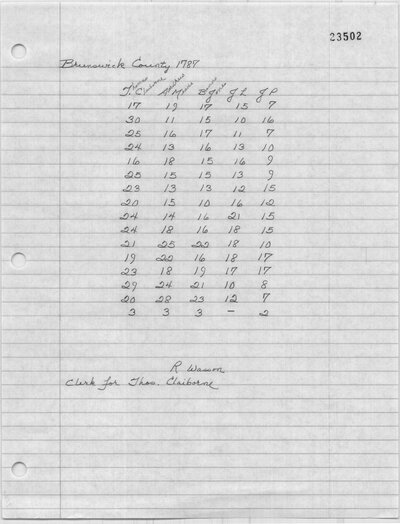 23502
Brunswick County 1787
Thomas Andrews Binns
T. Claiborne A. Meade B. Jones J L J P
17 19 17 15 7
30 11 15 10 16
25 16 17 11 7
24 13 16 13 10
16 18 15 16 9
25 15 15 13 9
23 13 13 12 15
20 15 10 16 12
24 14 16 21 15
24 18 16 18 15
21 25 22 18 10
19 22 16 18 17
23 18 19 17 17
29 24 21 10 8
20 28 23 12 7
3 3 3 – 2
R Wasson
Clerk for Thos. Claiborne